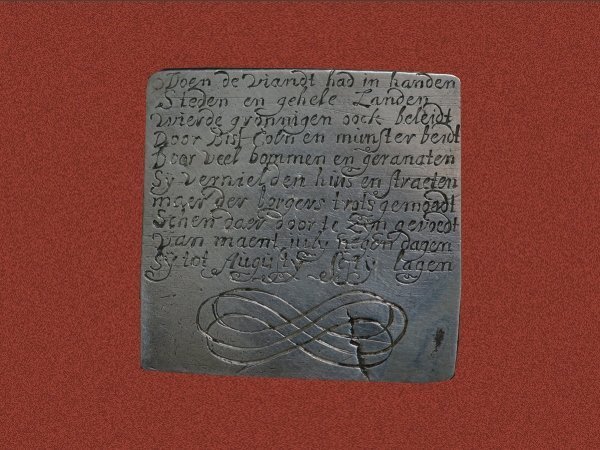 Doen de viandt had in handen
Steden en gehele Landen
wierde gronnigen oock beleidt
Door Bist Coln en munster beidt
Door veel bommen en geranaten
Sy vernielden huis en straeten
maer der borgers trots gemoedt
Scheen daer door te gevoedt
van maent july negen dagen
Sy tot Augusty lagen